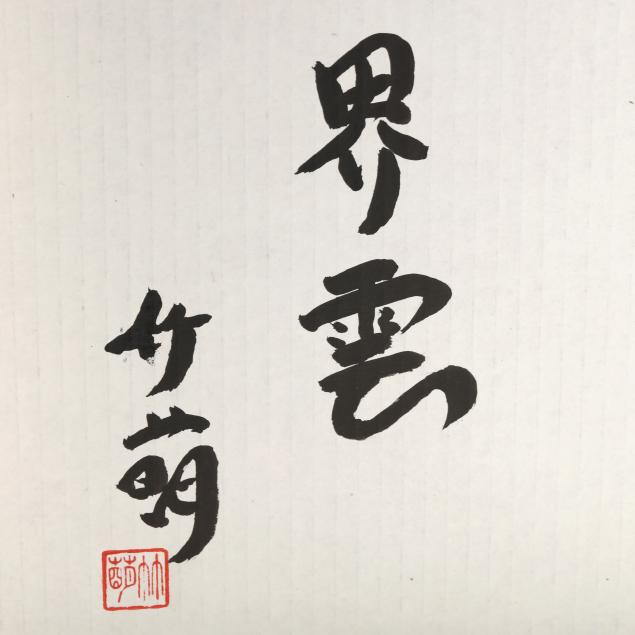 界雲
竹萌
竹萌